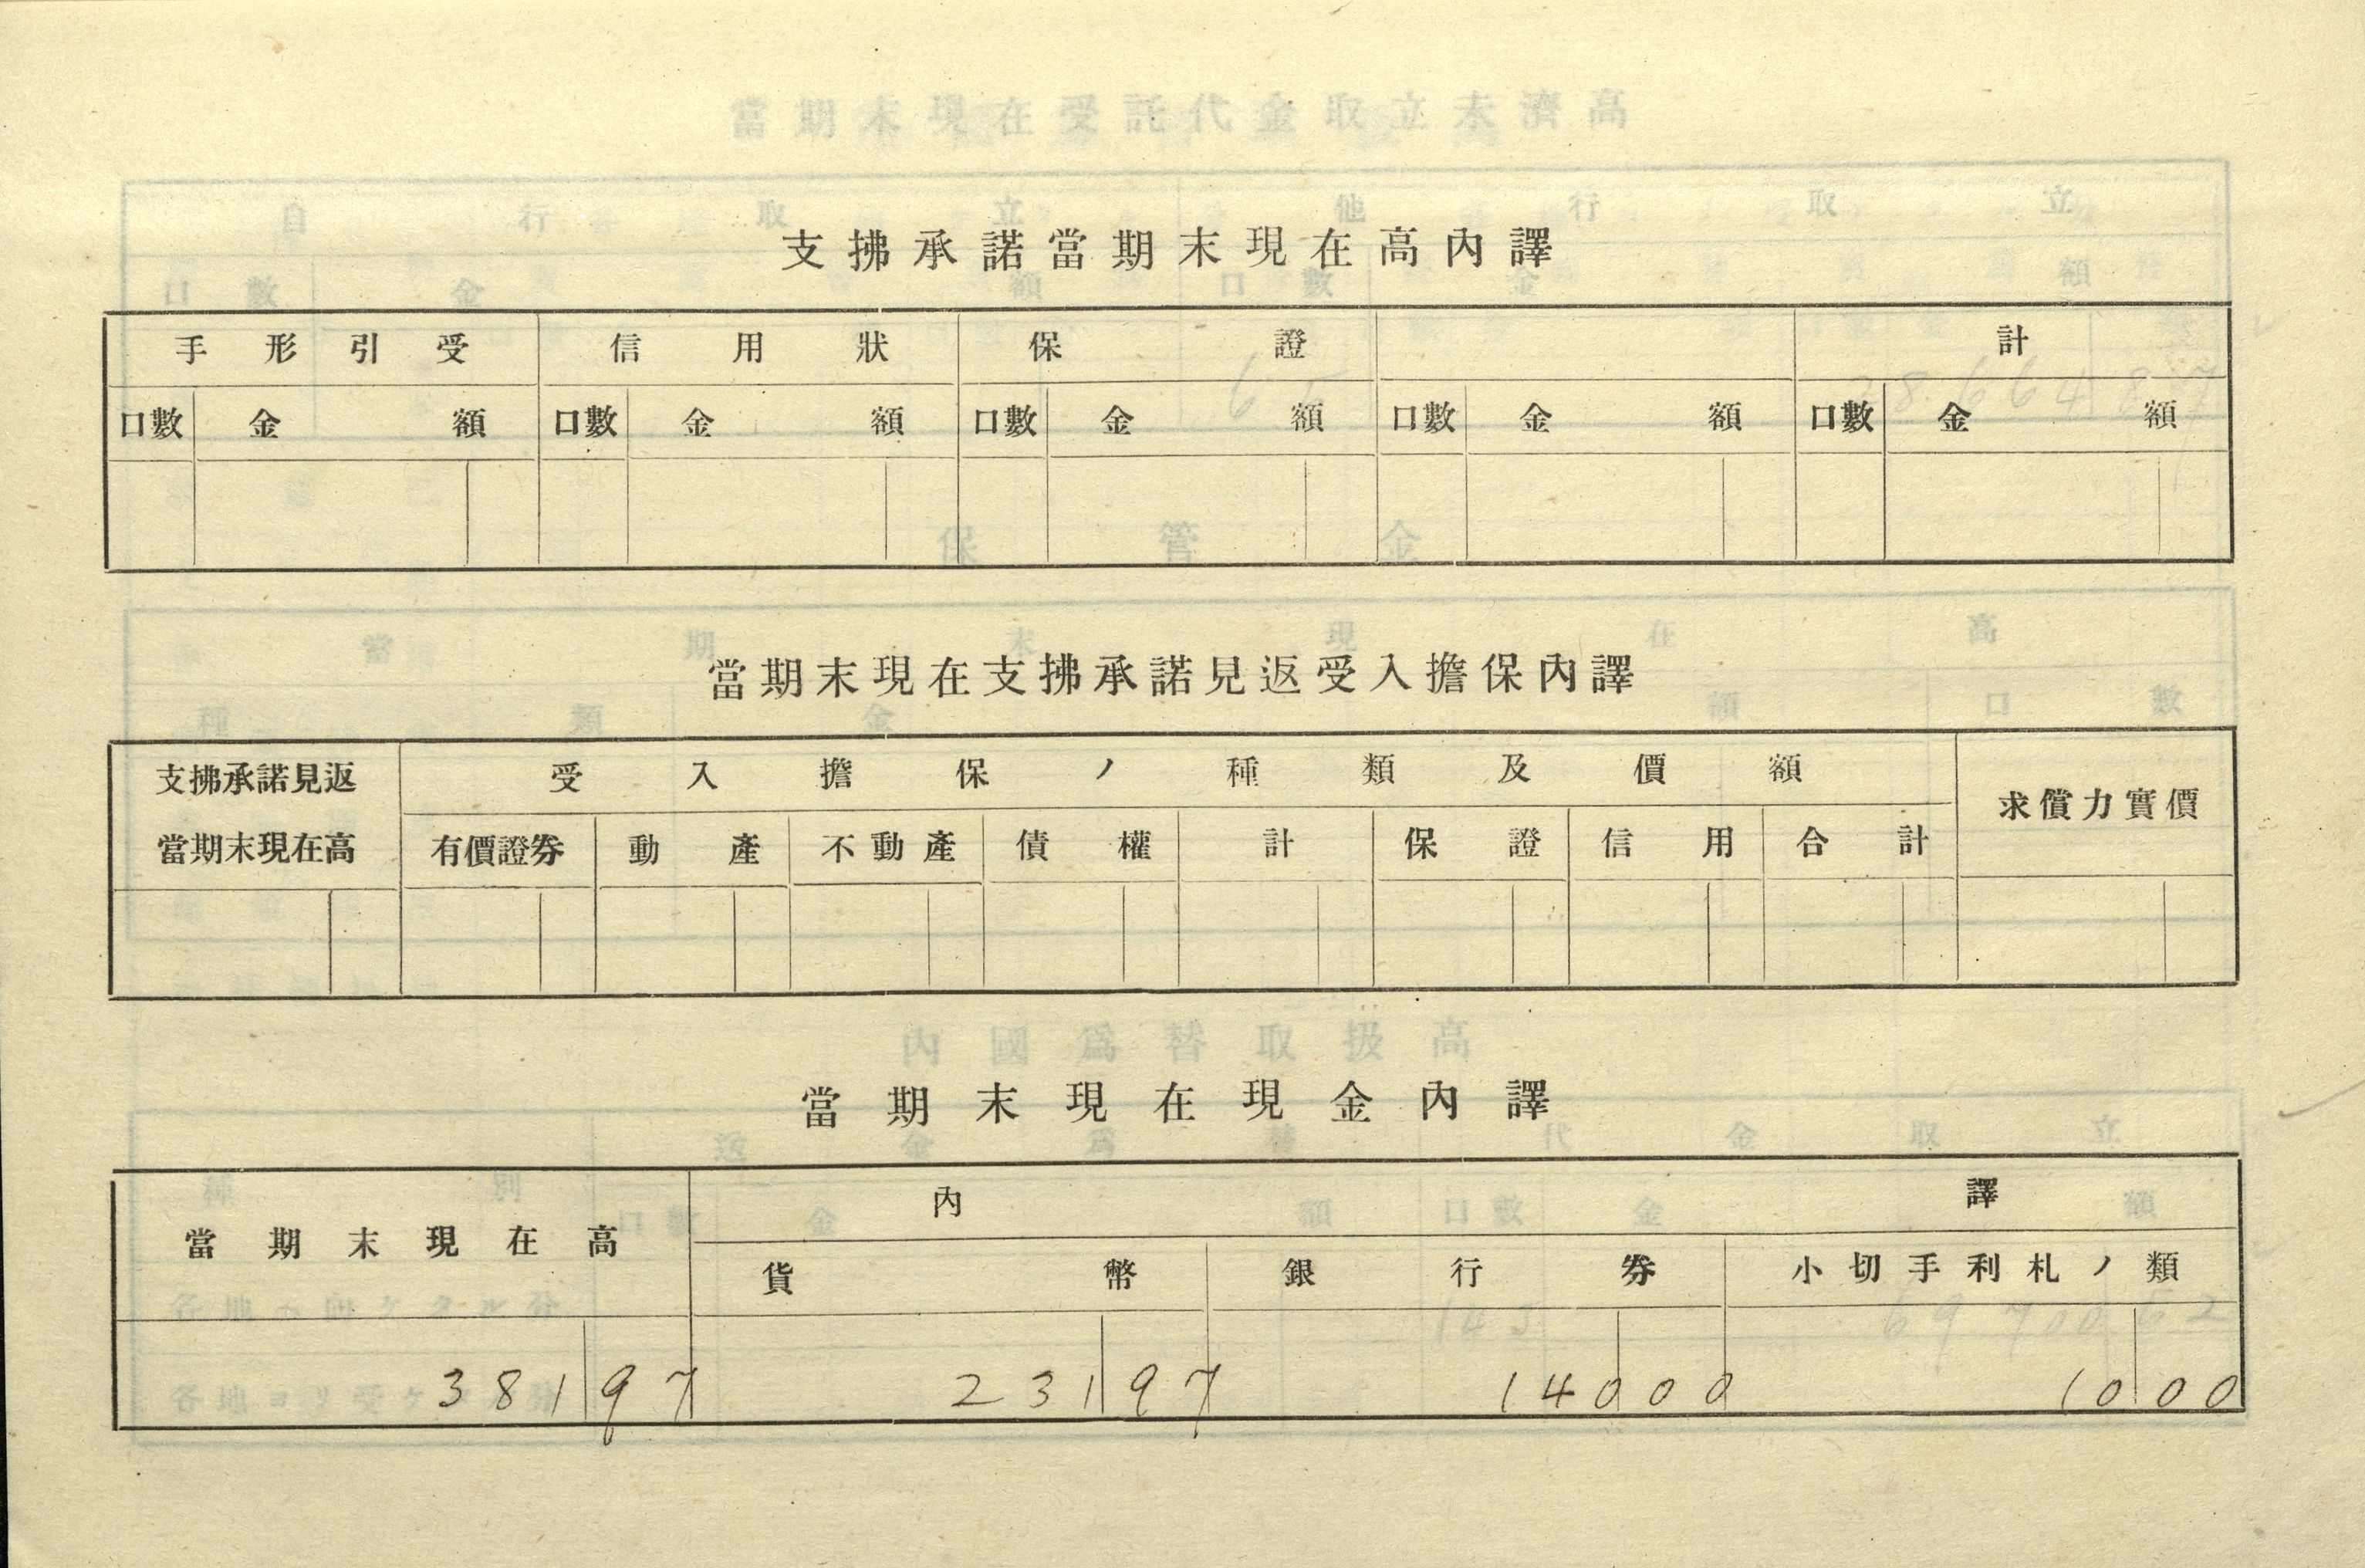 支拂承諾當期末現在高內譯
手形引受 信用狀 保證 計
口數 金額 口數 金額 口數 金額 口數 金額 口數 金額
當期末現在支拂承諾見返受入擔保內譯
支拂承諾見返當期末現在高 受入擔保ノ種類及價額 求償力實價
有價證券 動產 不動產 債權 計 保證 信用 合計
當期末現在現金內譯
當期末現在高 內譯
貨幣 銀行券 小切手利札ノ類
381 97 231 97 140 00 10 00